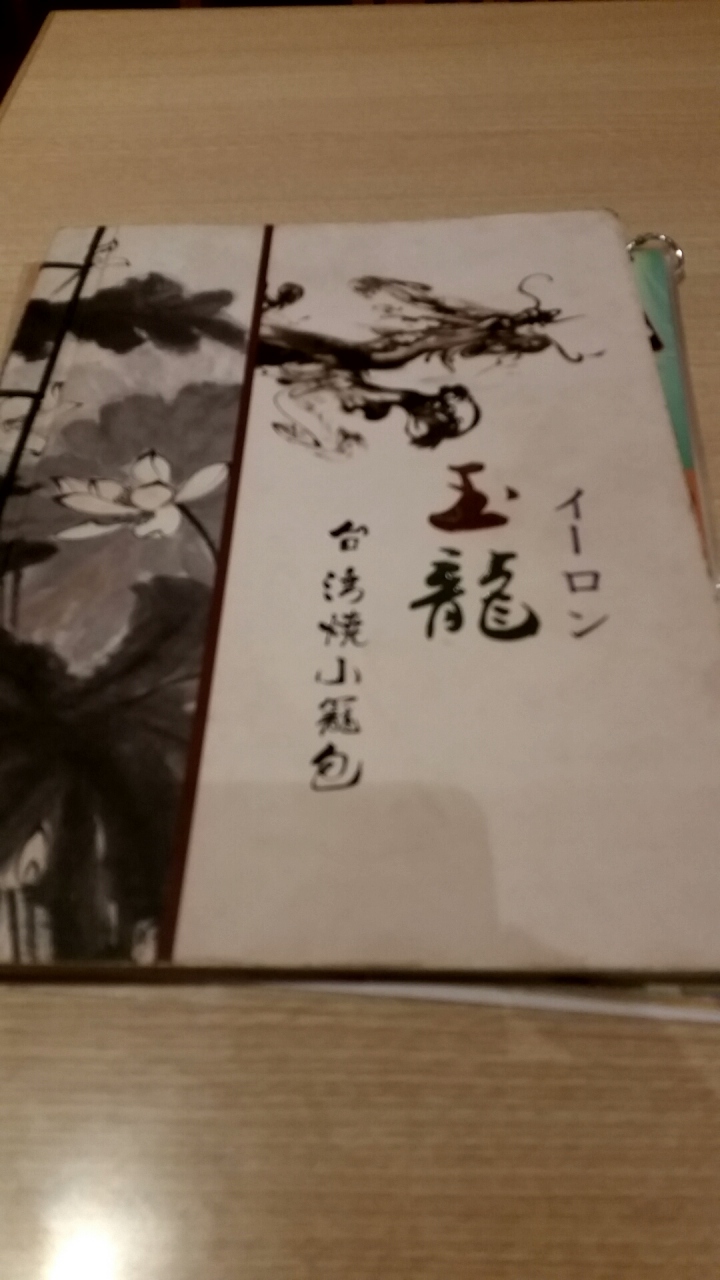 イーロン
玉龍
台湾焼小籠包